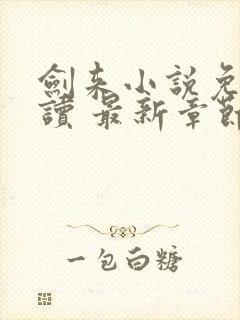 劍来小說免
讀 最新章節
一包白糖